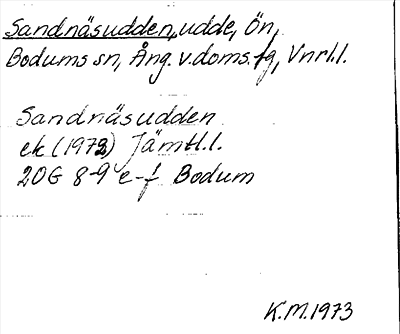 Sandnäsudden, udde, Ön,
Bodums sn, Ång. v. doms. fg, Vnrl.l.
Sandnäsudden
ek (1972) Jämtl.l.
20G 8-9 e-f Bodum
K.M.1973